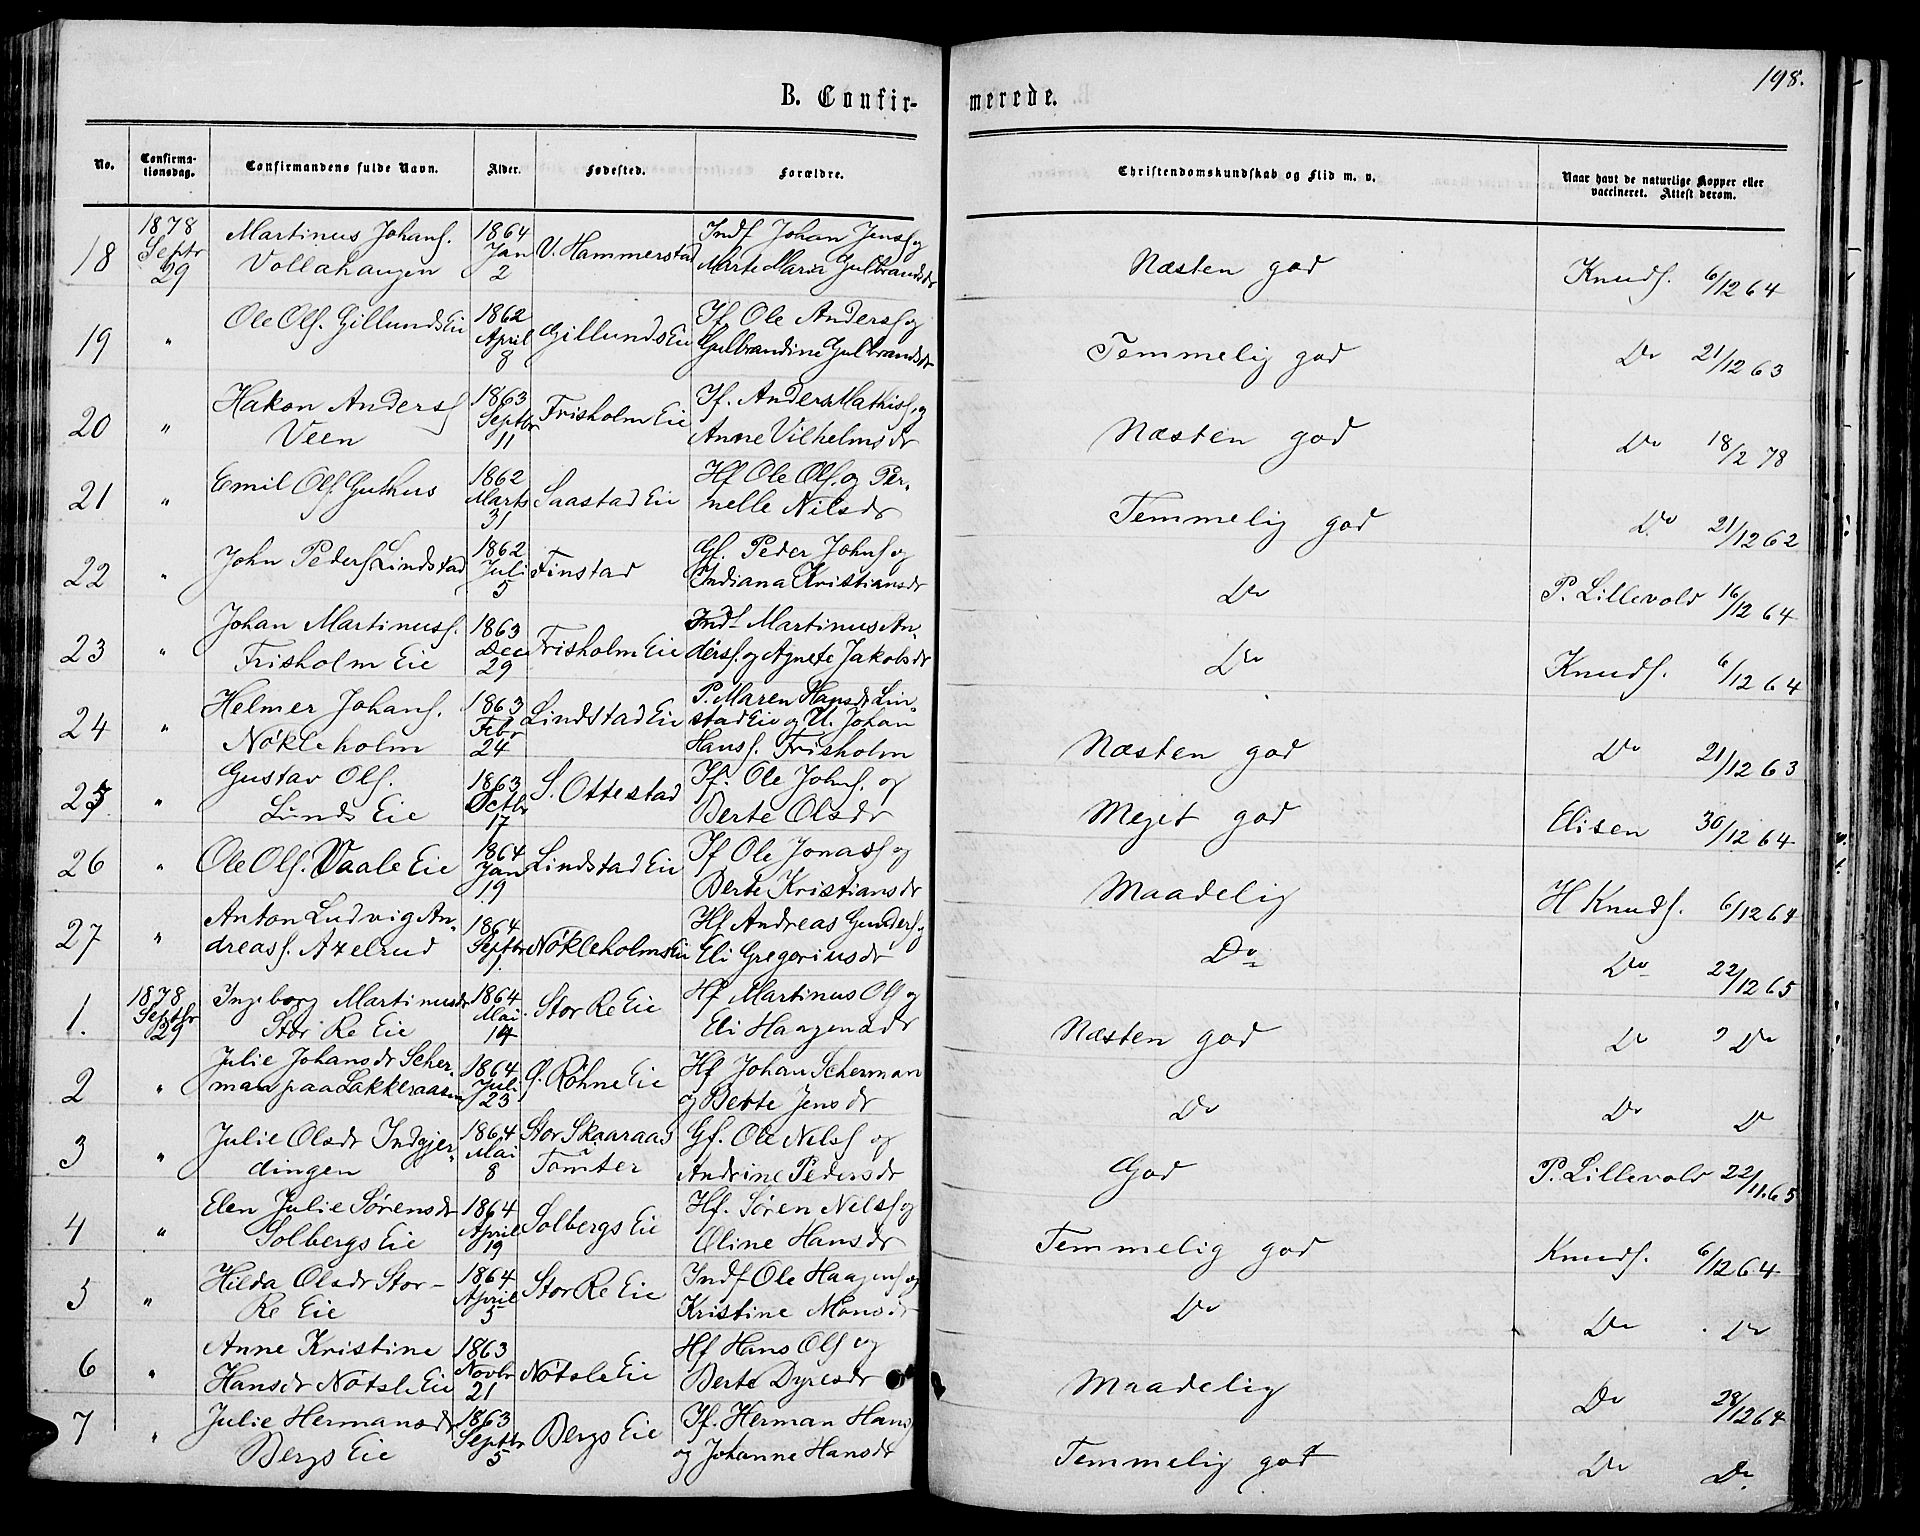 198.
B. Confirmerede.
No. Confirmationsdag. Confirmandens fulde Navn. Alder. Fødested. Forældre. Christendomskundskab og Flid m. v. Naar havt de naturlige Kopper eller vaccineret. Attest derom.
18 1878 Septr 29 Martinus Johans. Vollahaugen 1864 Jan 2 V. Hammerstad Indf Johan Jens. og Marte Maria Gulbrandsdr Næsten god Knuds. 6/12 64
19 " Ole Ols. Gillunds Eie 1862 April 8 Gillunds Eie If Ole Anders. og Gulbrandine Gulbrandsdr Temmelig god Do 21/12 63
20 " Hakon Anders. Veen 1863 Septbr 11 Frisholm Eie If. Anders Mathis. og Anne Vilhelmsdr Næsten god Do 18/2 78
21 " Emil Ols. Guthus 1862 Marts 31 Saastad Eie Hf Ole Ols. og Pernelle Nilsdr Temmelig god Do 21/12 62
22 " John Peders. Lindstad 1862 Juli 5 Finstad Gf. Peder Johns. og Indiana Kristiansdr Do P. Lillevold 16/12 64
23 " Johan Martinus. Frisholm Eie 1863 Dec 29 Frisholm Eie Indf Martinus Anders. og Agnete Jakobsdr Do Knuds. 6/12 64
24 " Helmer Johans. Nökleholm 1863 Febr 24 Lindstad Eie P. Maren Hansdr Linstad Eie og U. Johan Hans. Frisholm Næsten god Do 21/12 63
25 " Gustav Ols. Lunds Eie 1863 Octbr 17 S. Ottestad If. Ole Johns. og Berte Olsdr Meget god Elisen 30/12 64
26 " Ole Ols. Vaale Eie 1864 Jan 19 Lindstad Eie If Ole Jonas. og Berte Kristiansdr Maadelig H Knuds. 6/12 64
27 " Anton Ludvig Andreas. Axelrud 1864 Septbr 1. Nökleholms Eie Hf Andreas Gunders. og Eli Gregoriusdr Do Do 22/12 65
1. 1878 Septbr 29 Ingeborg Martinusdr Stor Re Eie 1864 Mai 14 Stor Re Eie Hf Martinus Ols. og Eli Haagensdr Næsten god Do Do
2 " Julie Johansdr Scherman paa Lakkeraasen 1864 Juli 23 Ø. Röhne Eie Hf Johan Scherman og Berte Jensdr Do Do D
3 " Julie Olsdr Indgjerdingen 1864 Mai 8 Stor Skaaraas Tomter Gf. Ole Nels. og Andrine Pedersdr God P. Lillevold 22/11 65
4 " Elen Julie Sørensdr Solbergs Eie 1864 April 19 Solbergs Eie Hf. Søren Nels. og Oline Hansdr Temmelig god Knuds. 6/12 64
5 " Hilda Olsdr Stor-Re Eie 1864 April 5 Stor Re Eie Indf Ole Haagens. og Kristine Monsdr Do Do Do
6 " Anne Kristine Hansdr Nötsle Eie 1863 Novbr 21 Nötsle Eie Hf Hans Ols. og Berte Dyresdr Maadelig Do 28/12 64
7 " Julie Hermansdr Bergs Eie 1863 Septbr 5 Bergs Eie If. Herman Hans. og Johanne Hansdr Temmelig god Do Do